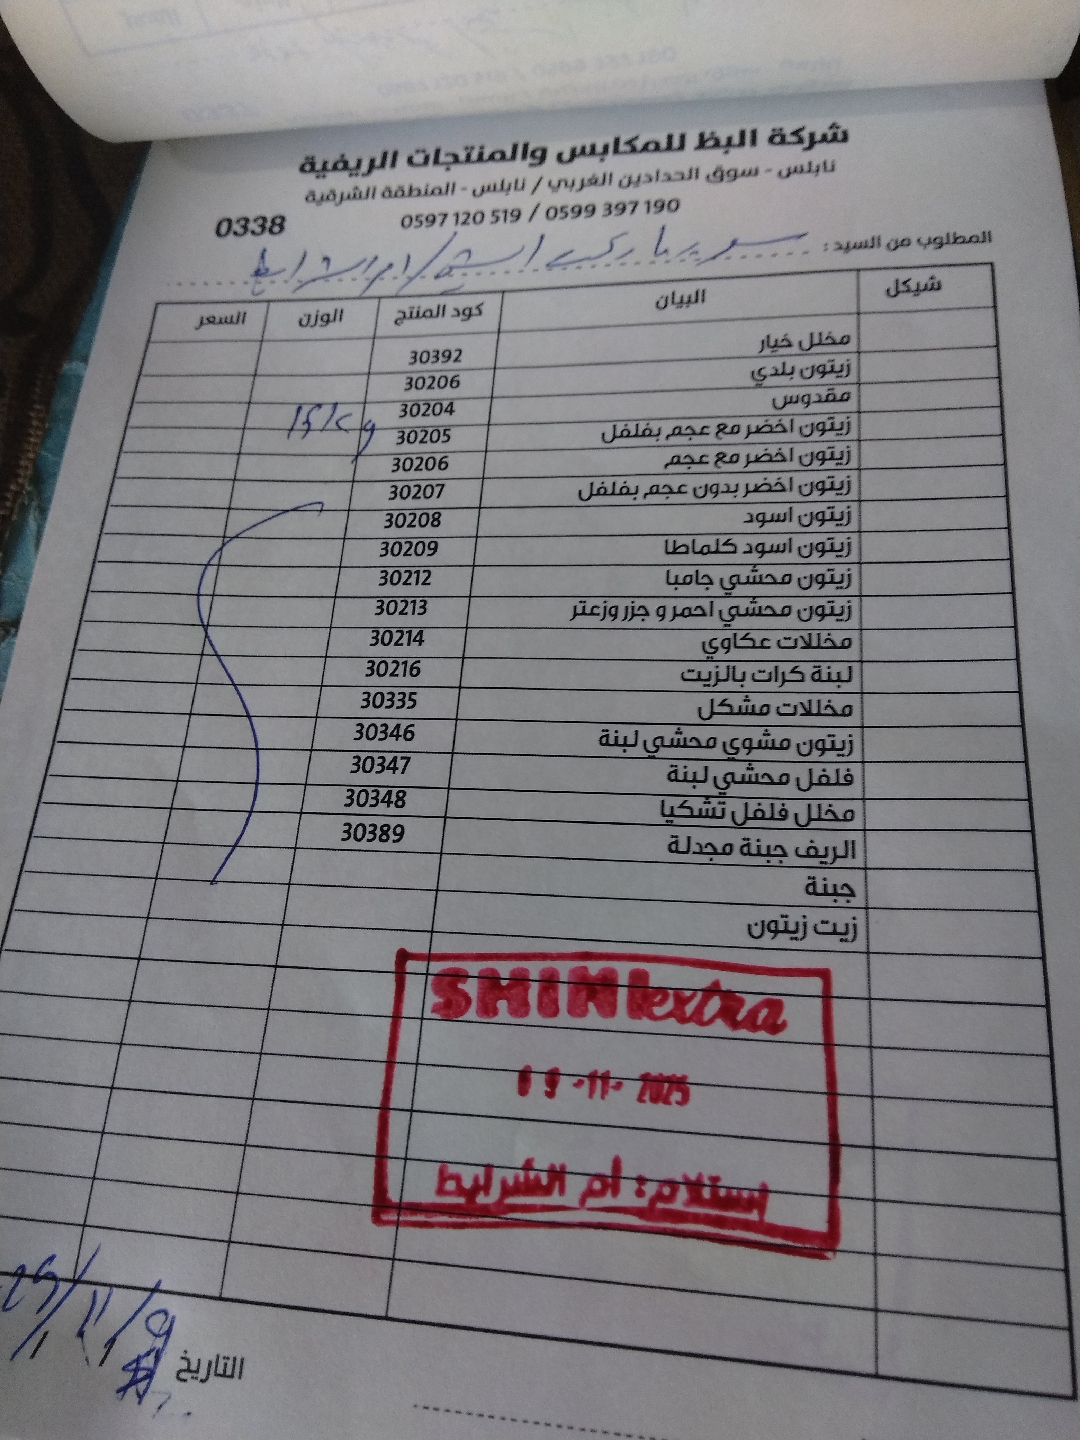 شركة البظ للمكابس والمنتجات الريفية
نابلس - سوق الحدادين الغربي / نابلس - المنطقة الشرقية
0597 120 519 / 0599 397 190
0338
المطلوب من السيد : سوبر ماركت الشني / ام الشرايط
شيكل البيان كود المنتج الوزن السعر
مخلل خيار 30392
زيتون بلدي 30206
مقدوس 30204 15 kg
زيتون اخضر مع عجم بفلفل 30205
زيتون اخضر مع عجم 30206
زيتون اخضر بدون عجم بفلفل 30207
زيتون اسود 30208
زيتون اسود كلماطا 30209
زيتون محشي جامبا 30212
زيتون محشي احمر و جزر وزعتر 30213
مخللات عكاوي 30214
لبنة كرات بالزيت 30216
مخللات مشكل 30335
زيتون مشوي محشي لبنة 30346
فلفل محشي لبنة 30347
مخلل فلفل تشكيا 30348
الريف جبنة مجدلة 30389
جبنة
زيت زيتون
SHINI extra
09 -11- 2025
إستلام: أم الشرايط
التاريخ 9/11/25